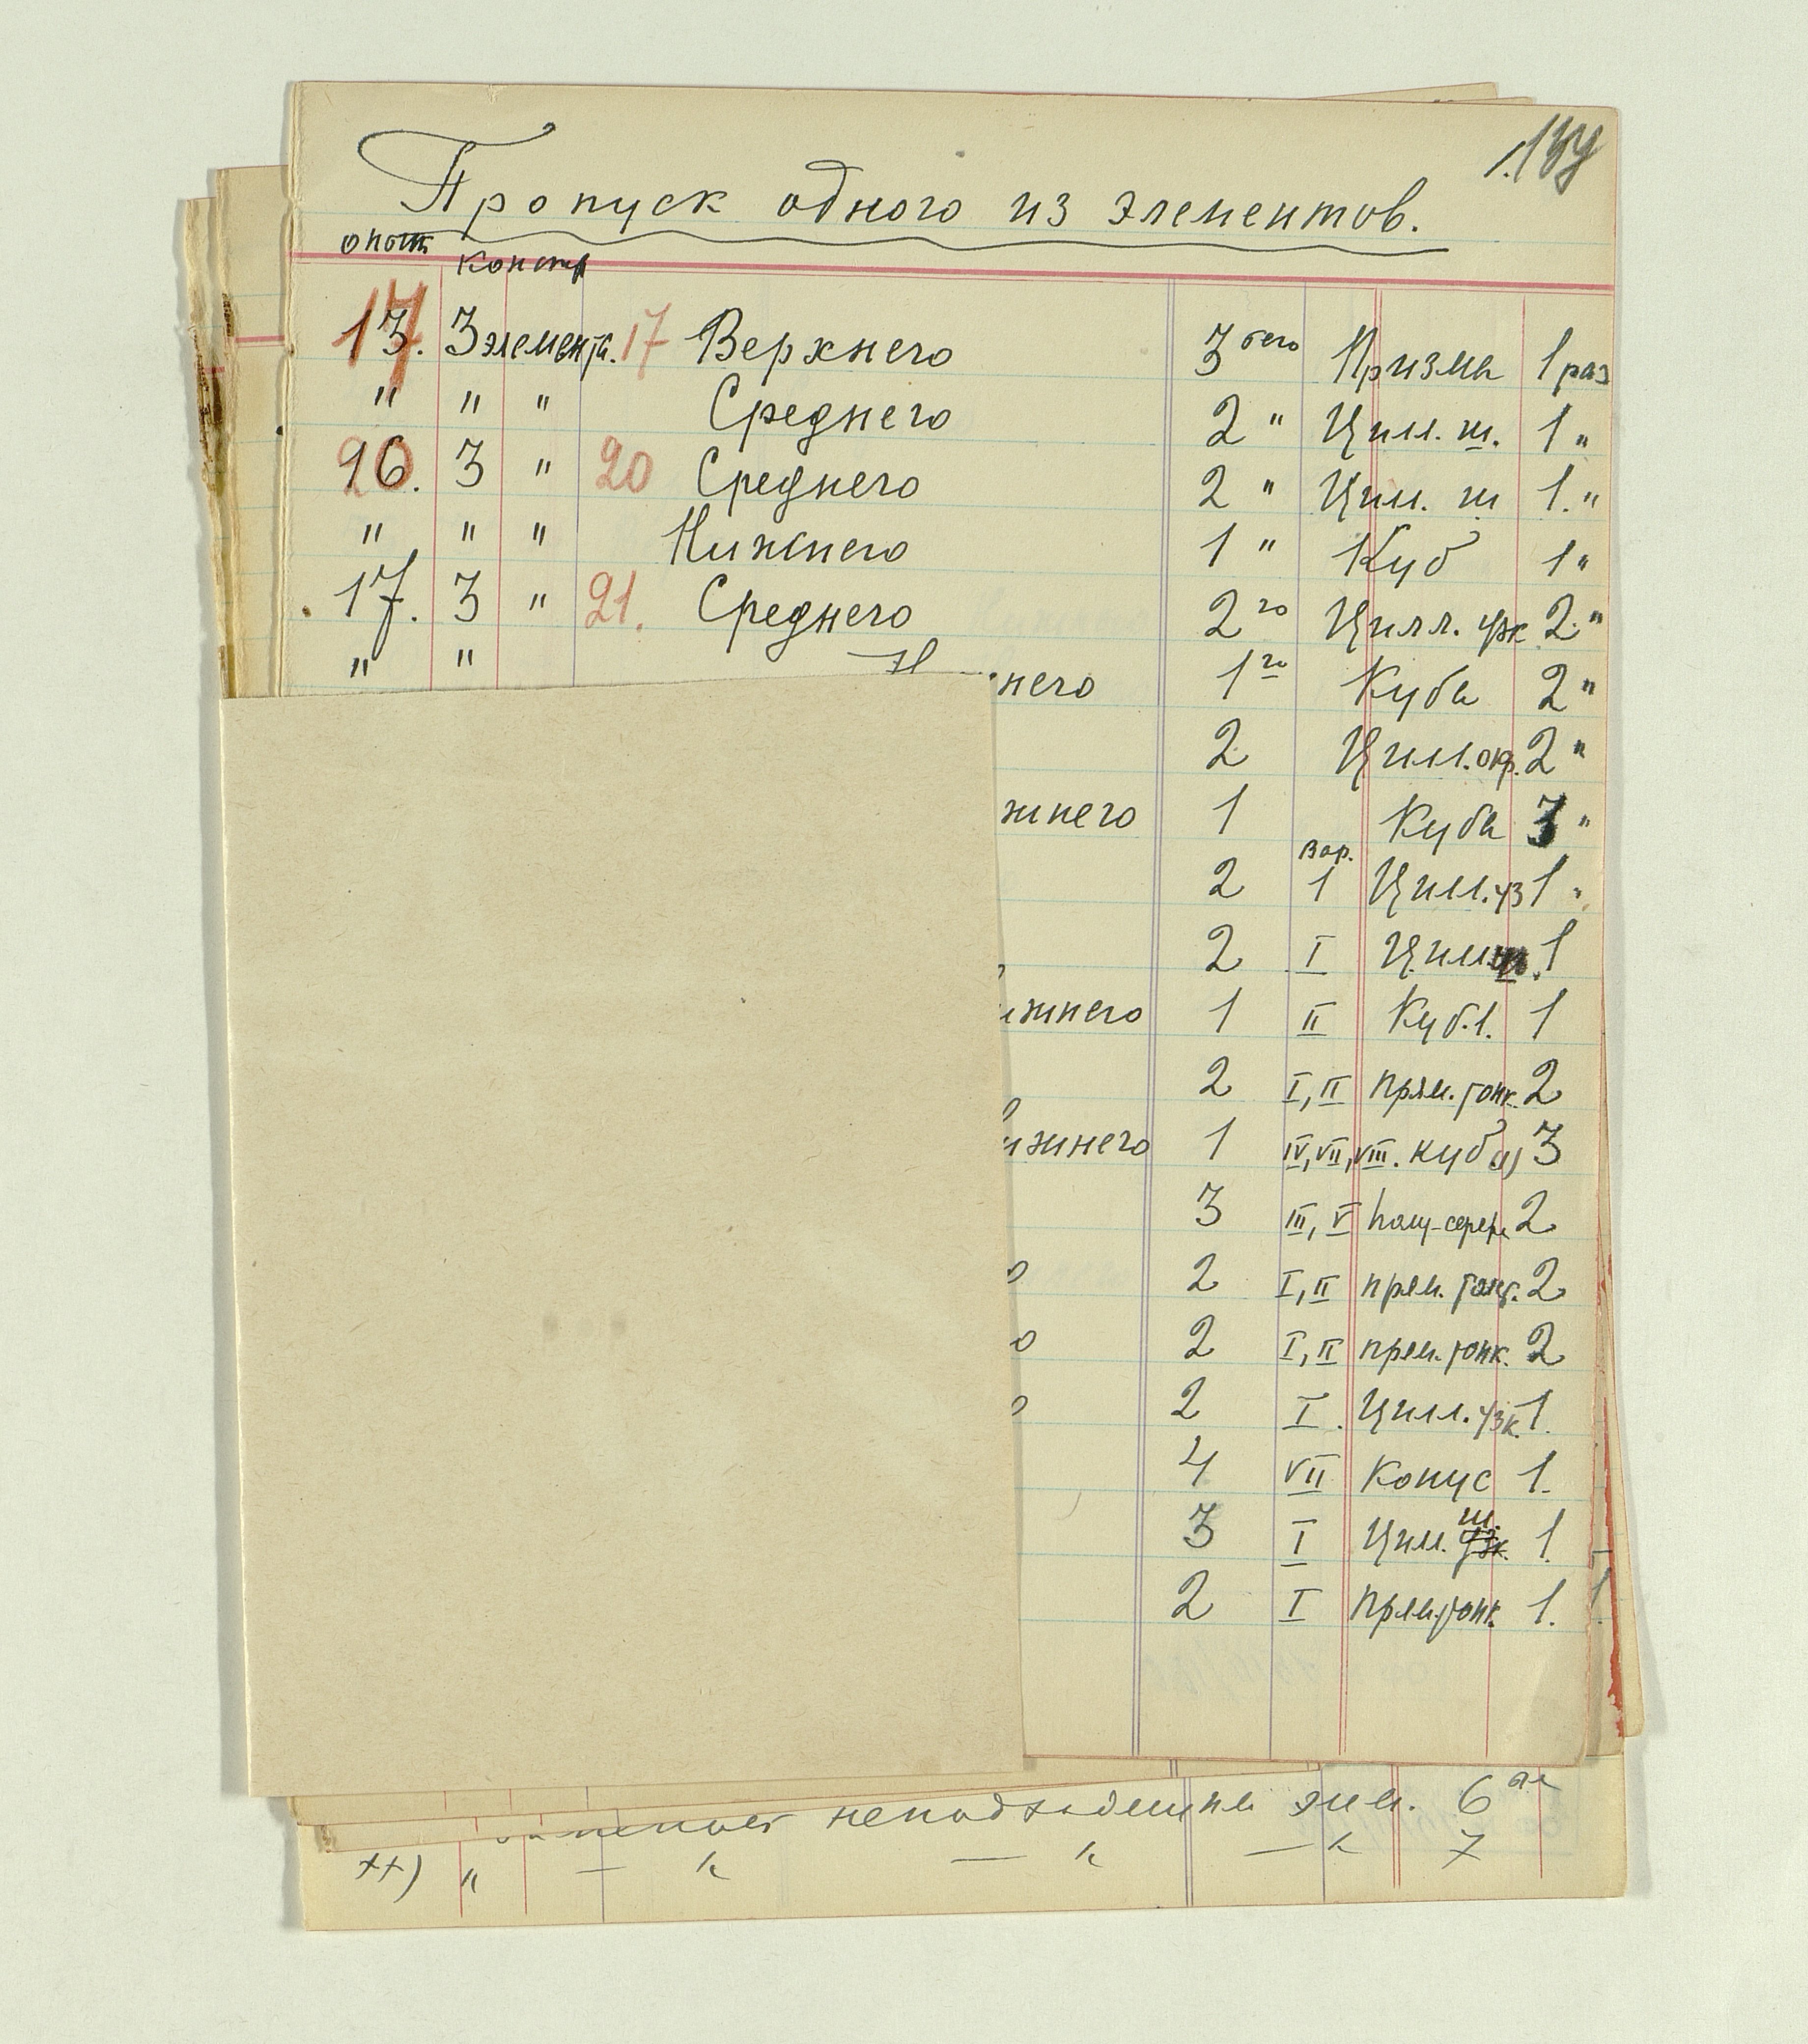 Пропуск одного из элементов.
опыт констр
13. 3 элемента. 17 Верхнего 3 его Призмы 1 раз
" " " Среднего 2 " Цилл. ш. 1 "
16. 3 " 20 Среднего 2 " Цил. ш 1. "
" " " Нижнего 1 " Куб 1 "
17. 3 " 21. Среднего 2 го Цилл. уж 2 "
" " Н него 1 го Куба 2 "
2 Цилл. 2 "
жнего 1 Куба 3 "
Вар.
2 1 Цилл. уз 1 "
2 I Цил. 1
ижнего 1 II Куб. 1. 1
2 I, II прям. тонк. 2
ижнего 1 IV, VII, VIII. куб 3
3 III, V 2
о 2 I, II прям. 2
о 2 I, II прям. тонк. 2
о 2 I. Цилл. узк. 1.
4 VII Конус 1.
3 I Цил. ш. узк. 1.
2 I прям. тонк. 1.
неподходящий элем. 6
++) " — " — " — " 7